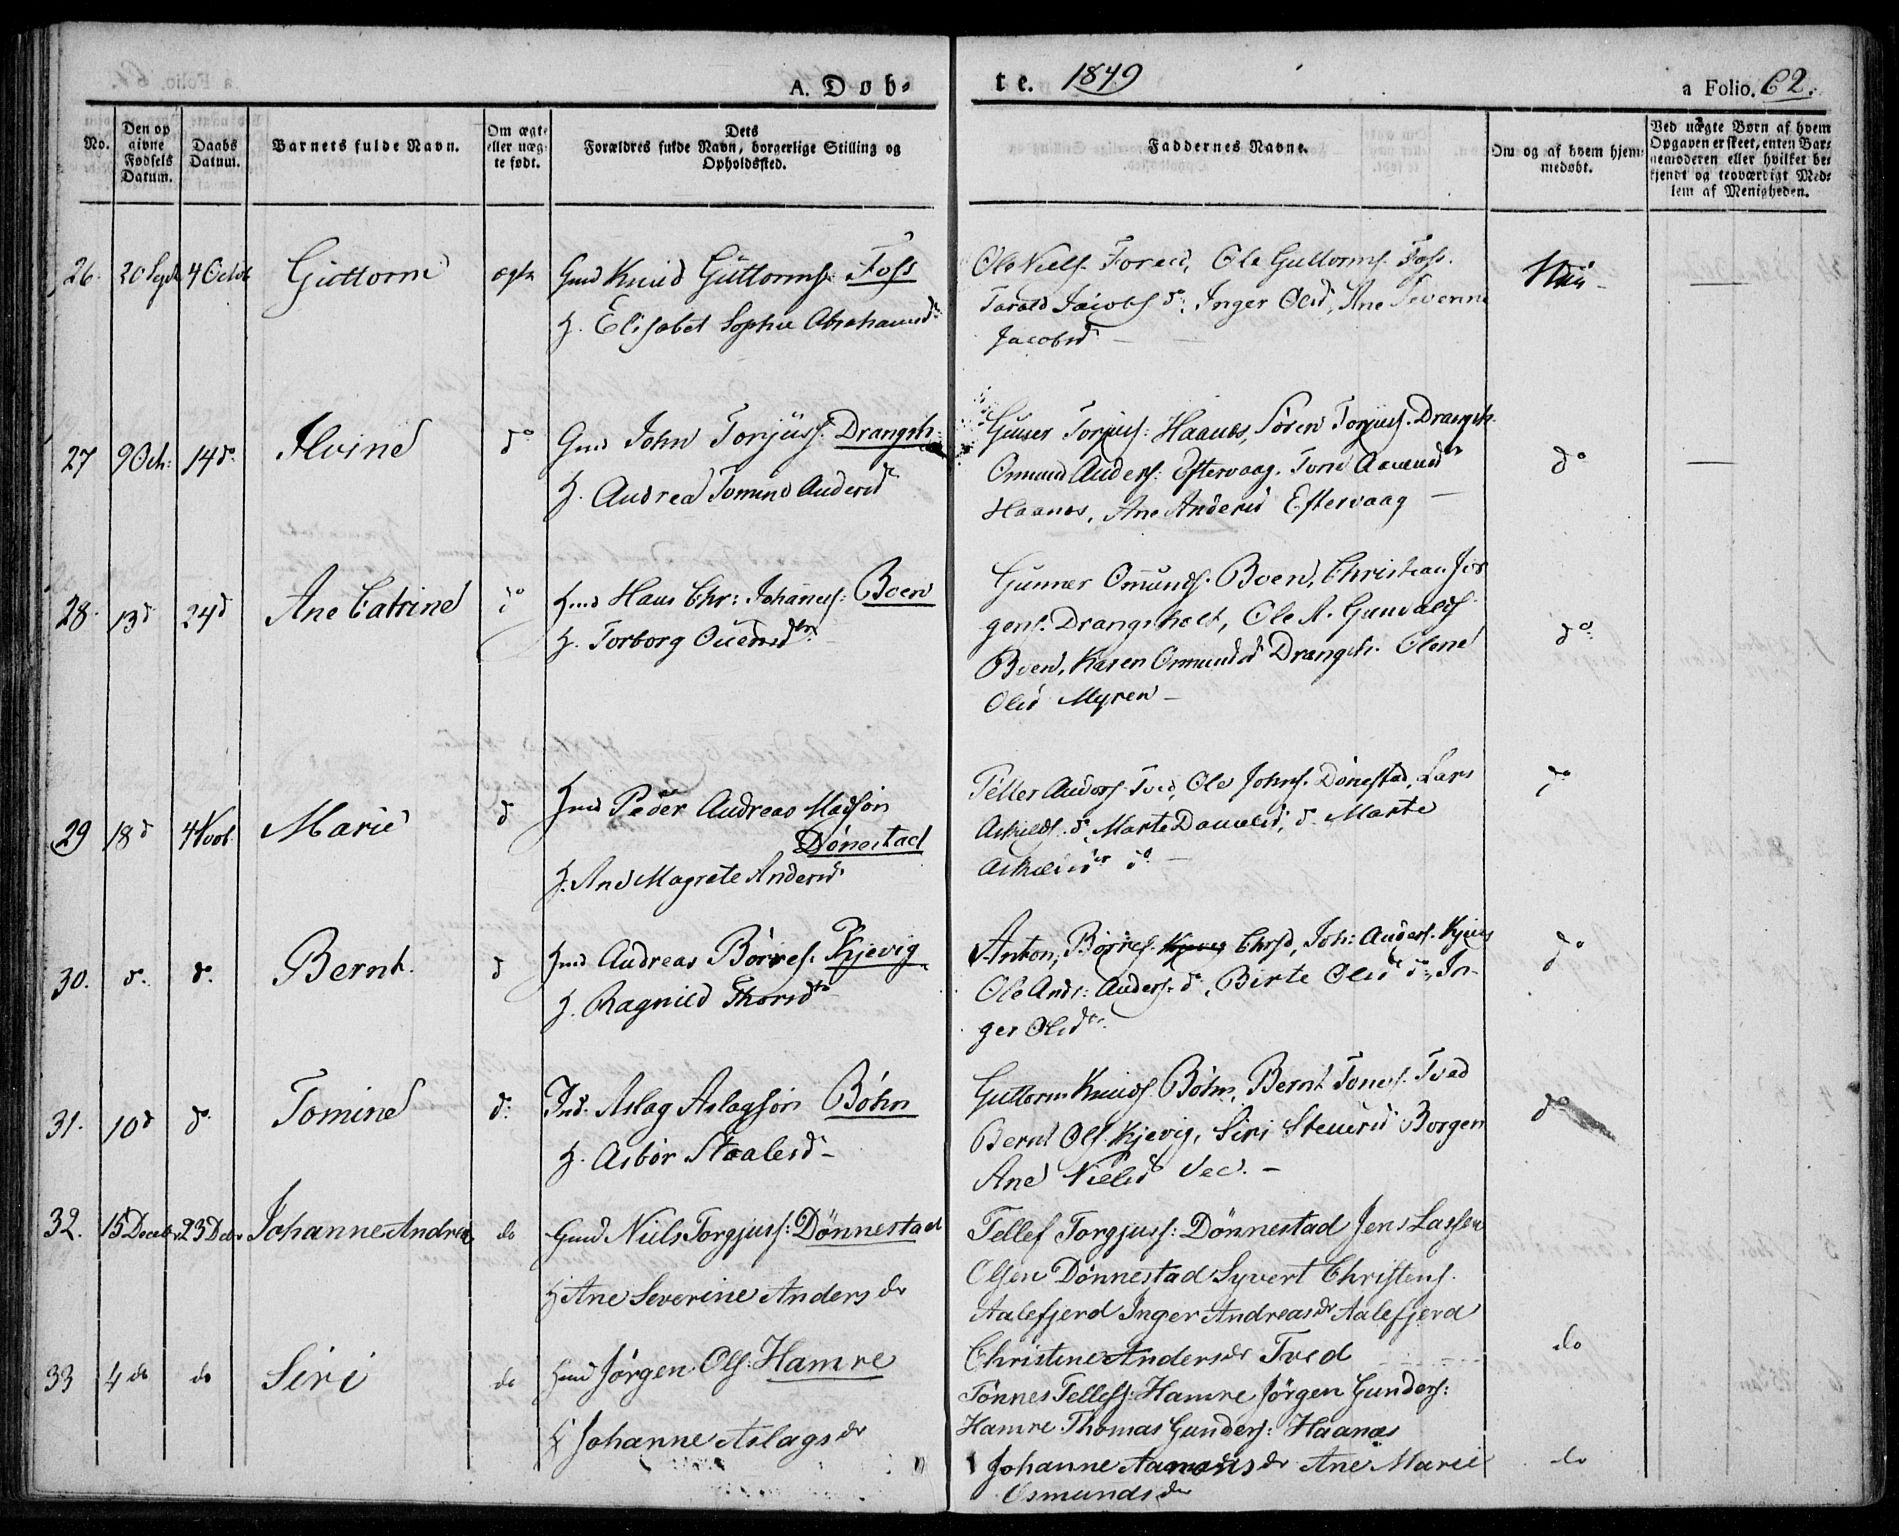 A. Døb-
te. 1849
a Folio. 62.
No.
Den op givne Fødsels Datum.
Daabs Datum.
Barnets fulde Navn.
Om ægte eller uæg- te født.
Dets Forældres fulde Navn, borgerlige Stilling og Opholdssted.
Faddernes Navne.
Om og af hvem hjem- medøbt.
Ved uægte Børn af hvem Opgaven er skeet, enten Bar- nemoderen eller hvilket be- kjendt og troværdigt Med- lem af Menigheden.
26. 20 Sept 4 Octob Guttorm ægte Gmd Knud Guttorms: Foss
H. Elisabet Sophie Abrahamsd
Ole Niels. Foreid, Ole Guttorms. Foss.
Tarald Jacobs do: Inger Olsd, Ane Severine
Jacobsd –
27 9 Oct: 14 do Alvine do Gmd John Torjuss. Drangsh:
H. Andrea Tomine Andersd
Gunner Torjuss: Haanes, Søren Torjuss. Drangsh.
Ormund Anders: Eftevaag. Tone Aamundd
Haanes, Ane Andersd Eftevaag –
do
28. 13 d 24 d Ane Catrine do Hmd Hans Chr: Johannes: Boen
H. Torborg Ouensdtr
Gunner Omunds. Boen, Christian Jør
gens. Drangsholt, Ole A. Gunvalds.
Boen, Karen Ormundsd Drangsh. Olene
Olsd Myren –
do:
29 18 d 4 Novb. Marie d Hmd Peder Andreas Madsøn
Dönestad
H. Ane Magrete Andersd
Tellef Anders Tved, Ole Johns. Dönestad, Lars
Askilds. do, Marte Danielsd, do. Marte
Askildsdr do –
do
30. d. do. Bernt. d Hmd Andreas Börres. Kjevig
H. Ragnild Thorsdtr
Anton, Börres. Kjevig Chrsd, Joh: Anders. Kjevig
Ole Ands: Anders. do, Birte Olsd do, In-
ger Olsdtr.
do
31. 10 d do Tomine d: Ind. Aslag Aslagsøn Böhn
H. Asbör Staalesd –
Guttorm Knuds. Böhn, Bernt Tönes. Tved
Bernt Ols Kjevig, Siri Stenersd Borgen
Ane Nielsd Vee. –
do
32. 15 Decebr 23 Debr Johanne Andrea do Gmd Niels Torgjuss: Dönnestad
H Ane Severine Anders dr
Tellef Torgjuss: Dönnestad Jens Lassen
Olsen Dönnestad Syvert Christens.
Aalefjerd Inger Andreas dr Aalefjerd
Christine Anders dr Tved
do
33 4 do do Siri do Hmd Jörgen Ols: Hamre
H Johanne Aslags dr
Tönnes Tellefs: Hamre Jörgen Gunders:
Hamre Thomas Gunders: Haanes
Johanne Aamunds dr Ane Marie
Osmunds dtr
do